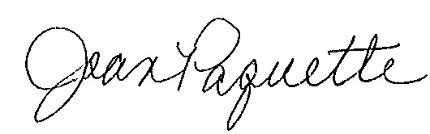 Jean Paquette